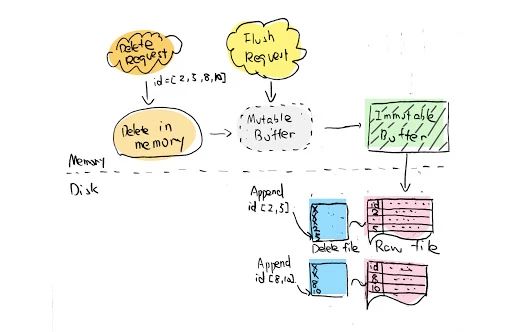 Delete
Request
Flush
Request
id=[2,5,8,10]
Delete in
memory
Mutable
Buffer
Immutable
Buffer
Memory
Disk
Append
id [2,5]
Delete file
id
2
5
Raw file
Append
id [8,10]
8
10
id
8
10